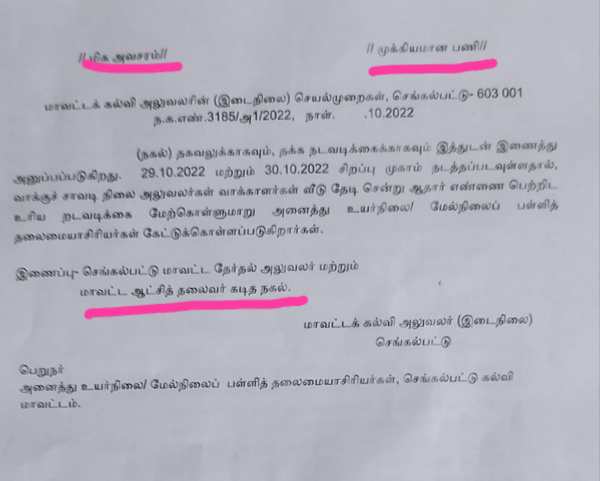 //மிக அவசரம்//
// முக்கியமான பணி//
மாவட்டக் கல்வி அலுவலரின் (இடைநிலை) செயல்முறைகள், செங்கல்பட்டு- 603 001
ந.க.எண்.3185/அ1/2022, நாள். .10.2022
(நகல்) தகவலுக்காகவும், தக்க நடவடிக்கைக்காகவும் இத்துடன் இணைத்து
அனுப்பப்படுகிறது. 29.10.2022 மற்றும் 30.10.2022 சிறப்பு முகாம் நடத்தப்படவுள்ளதால்,
வாக்குச் சாவடி நிலை அலுவலர்கள் வாக்காளர்கள் வீடு தேடி சென்று ஆதார் எண்ணை பெற்றிட
உரிய நடவடிக்கை மேற்கொள்ளுமாறு அனைத்து உயர்நிலை/ மேல்நிலைப் பள்ளித்
தலைமையாசிரியர்கள் கேட்டுக்கொள்ளப்படுகிறார்கள்.
இணைப்பு- செங்கல்பட்டு மாவட்ட தேர்தல் அலுவலர் மற்றும்
மாவட்ட ஆட்சித் தலைவர் கடித நகல்.
மாவட்டக் கல்வி அலுவலர் (இடைநிலை)
செங்கல்பட்டு
பெறுநர்
அனைத்து உயர்நிலை/ மேல்நிலைப் பள்ளித் தலைமையாசிரியர்கள், செங்கல்பட்டு கல்வி
மாவட்டம்.